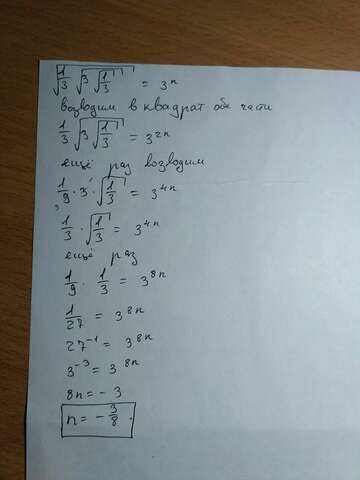 √(1/3 √(3 √(1/3))) = 3ⁿ
возводим в квадрат обе части
1/3 √(3 √(1/3)) = 3²ⁿ
ещё раз возводим
1/9 · 3 · √(1/3) = 3⁴ⁿ
1/3 · √(1/3) = 3⁴ⁿ
ещё раз
1/9 · 1/3 = 3⁸ⁿ
1/27 = 3⁸ⁿ
27⁻¹ = 3⁸ⁿ
3⁻³ = 3⁸ⁿ
8n = - 3
n = - 3/8.